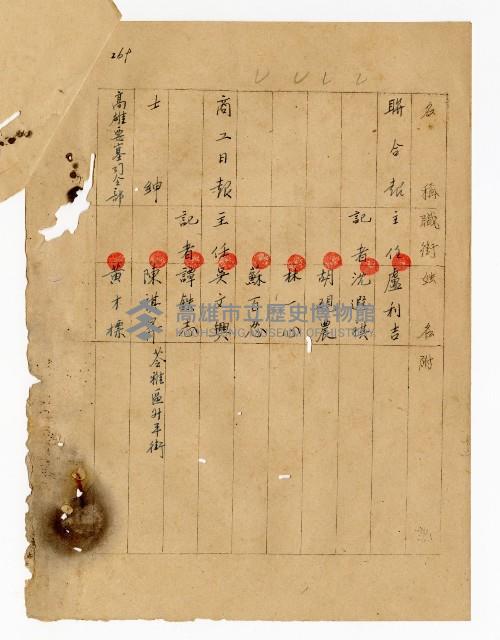 269
名稱 職銜 姓名 附
聯合報 主任 盧利吉
記者 沈遐祺
胡碩農
林一
蘇
商工日報 主任 吳文興
記者 譚鎮志
士紳 陳祺 苓雅區升平街
高雄要塞司令部 黃才標
高雄市立歷史博物館
KAOHSIUNG MUSEUM OF HISTORY